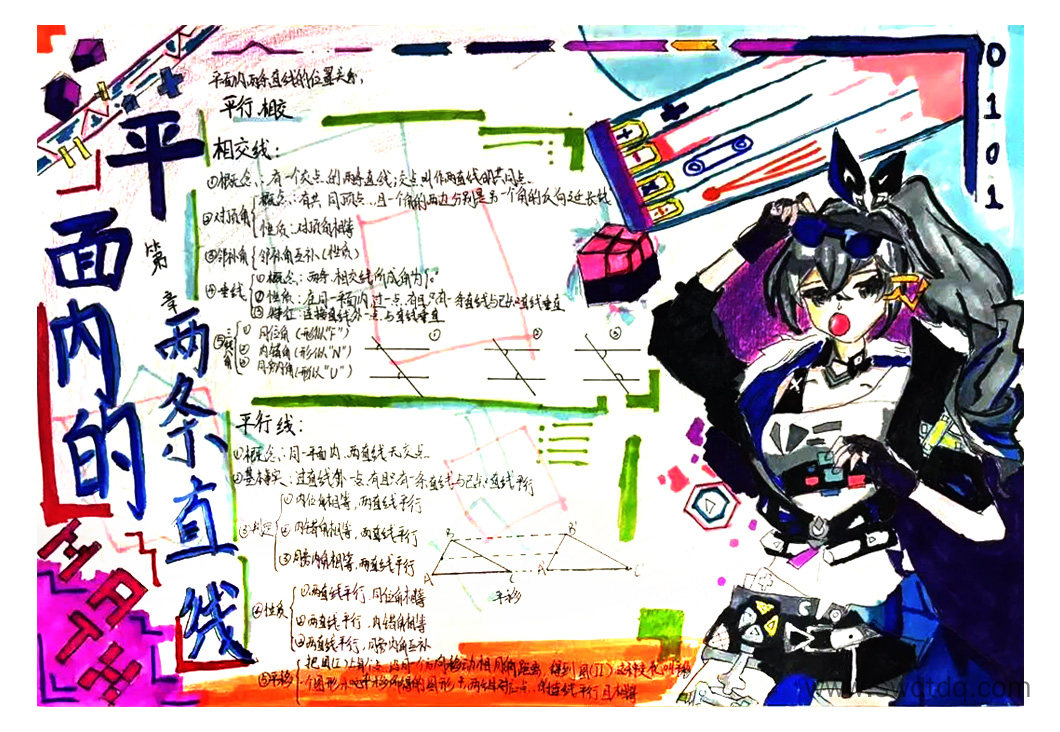 平面内的
两条直线
第 章
平面内两条直线的位置关系:
平行、相交
相交线:
①概念:有一个交点的两条直线;交点叫作两直线的共同点
②对顶角
概念:有共同顶点,且一个角的两边分别是另一个角的反向延长线
性质:对顶角相等
③邻补角 邻补角互补(性质)
④垂线
①概念:两条相交线所成角为
②性质:在同一平面内,过一点有且只有一条直线与已知直线垂直
③ 连接直线外一点与直线垂直
⑤三线八角
① 同位角(形似"F")
② 内错角(形似"N")
③ 同旁内角(形似"U")
① ② ③
平行线:
①概念:同一平面内,两直线无交点
②基本事实:过直线外一点有且只有一条直线与已知直线平行
③判定
①同位角相等,两直线平行
②内错角相等,两直线平行
③同旁内角相等,两直线平行
B B'
A C A' C'
平移
④性质
①两直线平行,同位角相等
②两直线平行,内错角相等
③两直线平行,同旁内角互补
⑤平移
把图(I)上每个点 同一个方向移动相同的距离,得到图(II)这种变化叫平移
MATH
0
1
0
1
www.swqtdq.com